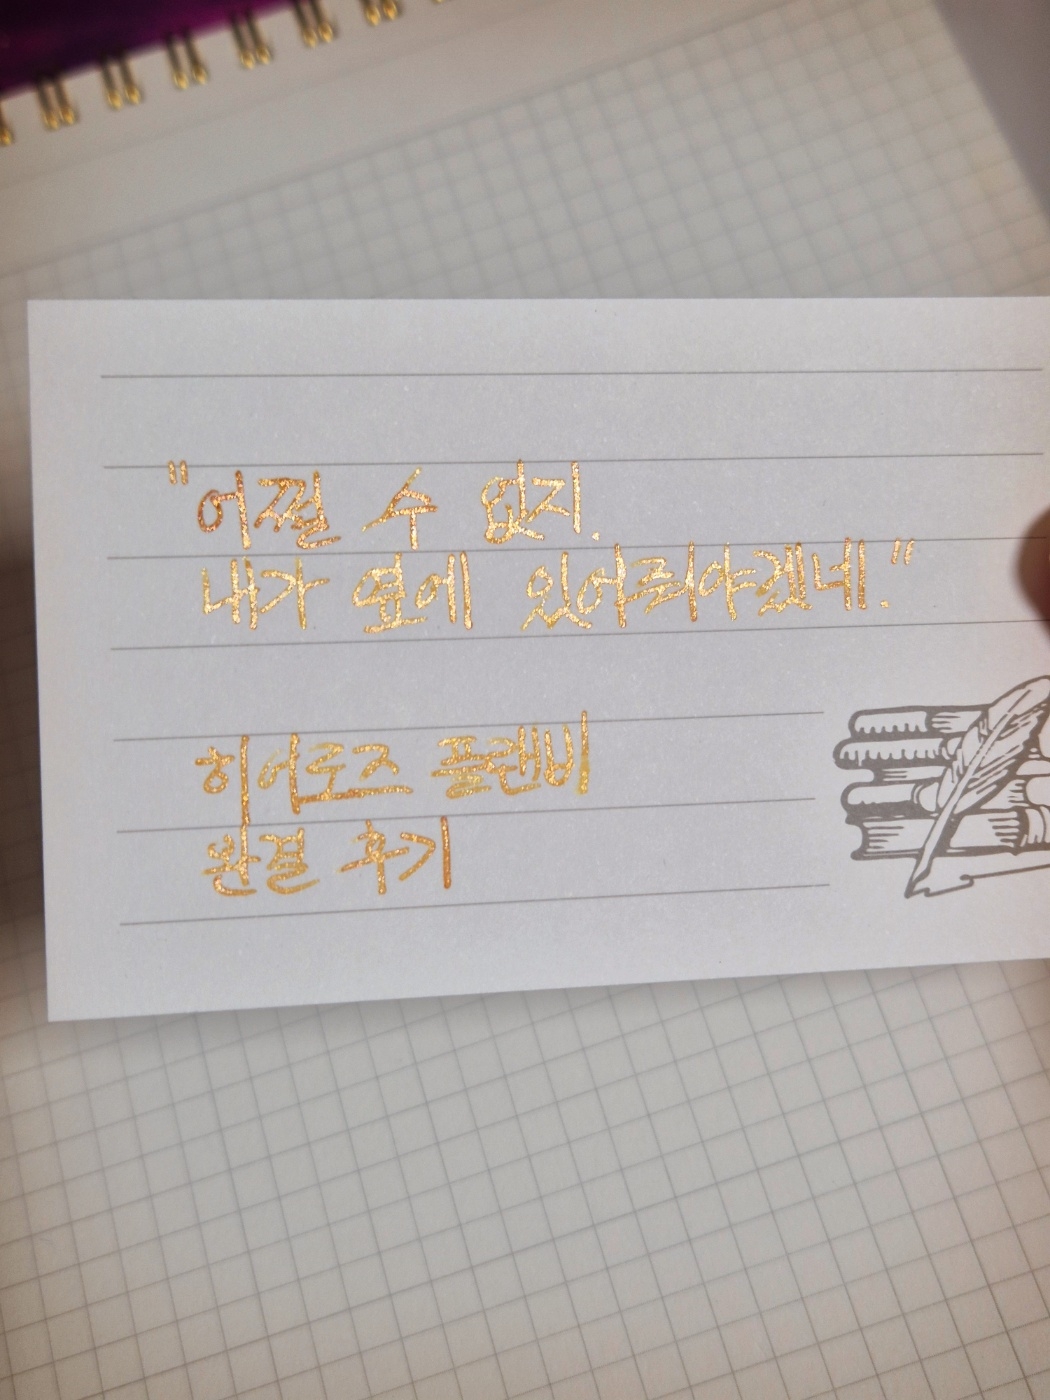 "어쩔 수 없지.
내가 옆에 있어줘야겠네."
히어로즈 플랜비
완결 후기